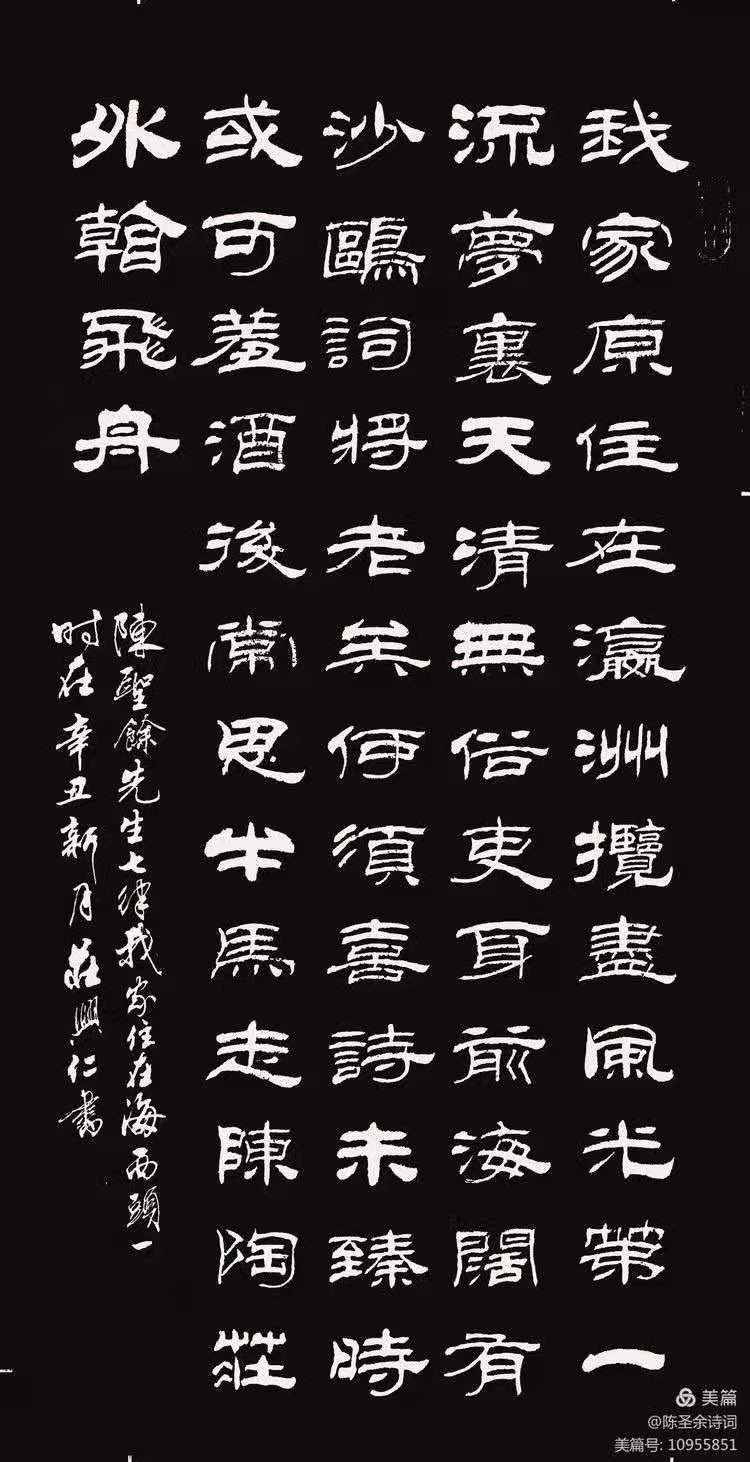 我家原住在瀛洲攬盡風光第一
流夢裏天清無俗吏耳前海闊有
沙鷗詞將老矣何須喜詩未臻時
或可羞酒後常思牛馬走陳陶莊
外翰飛舟
陳聖餘先生七律我家住在海西頭一
时在辛丑新月莊興仁書
美篇
@陈圣余诗词
美篇号: 10955851